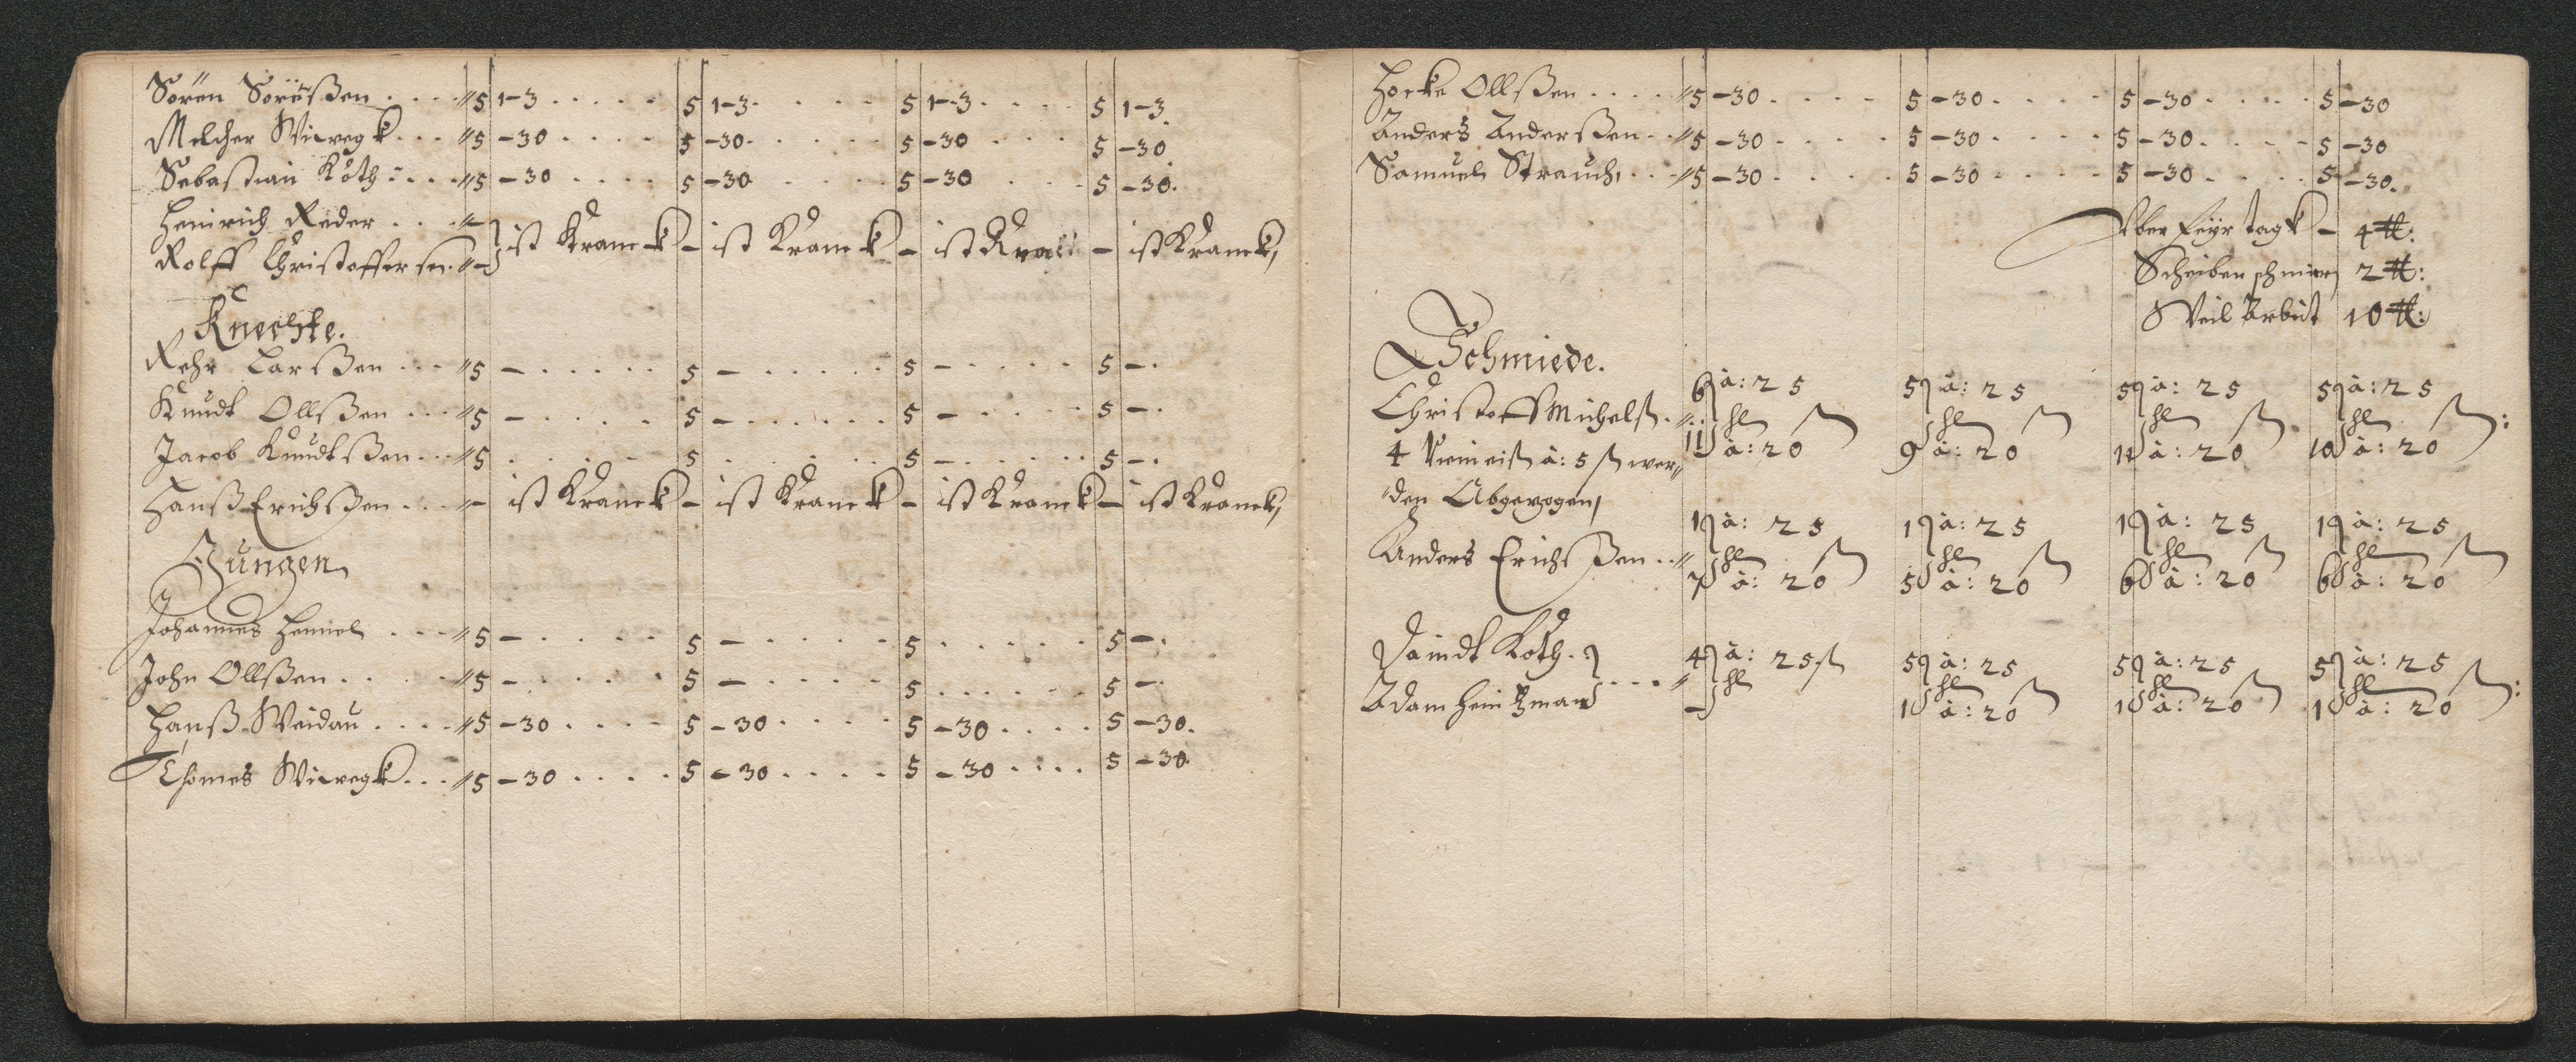 Sören Sörenßen . . . . // 5 1-3 . . . . . 5 1-3 . . . . . 5 1-3 . . . . 5 1-3.
Melcher Wiwegk . . . // 5 - 30 . . . . . 5 - 30 . . . . . 5 - 30 . . . 5 - 30.
Sebastian Koth: . . . // 5 - 30 . . . . 5 - 30 . . . . 5 - 30 . . . 5 - 30.
Heinrich Reder . . . // -
Rolff Christoffersen. // - ist Kranck - ist Kranck - ist - ist Kranck,
Knechte.
Rehr Larßen . . . // 5 - . . . . . 5 - . . . . . 5 - . . . . . 5 - .
Knudt Ollßen . . . // 5 - . . . . 5 - . . . . . . 5 - . . . . 5 - .
Jacob Knudtßen . . . // 5 . . . . . 5 . . . . . 5 - . . . . . 5 - .
Hanß Erichßen . . . // - ist Kranck - ist Kranck - ist Kranck - ist Kranck,
Jungen
Johannes Hemel . . . . // 5 - . . . . . 5 - . . . . . 5 . . . . . 5 - .
John Ollßen . . . . . // 5 - . . . . . 5 - . . . . . 5 . . . . . . 5 - .
Hanß Weidau . . . . // 5 - 30 . . . . 5 - 30 . . . . 5 - 30 . . . . 5 - 30.
Thomes Wiwegk . . . // 5 - 30 . . . . 5 - 30 . . . . 5 - 30 . . . . 5 - 30.
Ollßen . . . . // 5 - 30 . . . . 5 - 30 . . . . 5 - 30 . . . . 5 - 30
Anders Anderßen . . // 5 - 30 . . . . 5 - 30 . . . . 5 - 30 . . . . 5 - 30
Samuel Strauch . . . // 5 - 30 . . . . 5 - 30 . . . . 5 - 30 . . . . 5 - 30.
Feyr tagk - 4 ℔:
Scheiben schmirn 2 ℔:
Arbeit 10 ℔:
Schmiede.
6 à: 25 5 à: 25 5 à: 25 5 à: 25
Christoff Michelß. //
4 à: 5 ß wer= 11 à: 20 9 à: 20 11 à: 20 10 à: 20
den Abgezogen,
1 à: 25 1 à: 25 1 à: 25 1 à: 25
Anders Erichßen . . //
7 à: 20 5 à: 20 6 à: 20 6 à: 20
Davidt Koth. 4 à: 25 ß 5 à: 25 5 à: 25 5 à: 25
Adam Heintzman . . . // - 1 à: 20 1 à: 20 1 à: 20